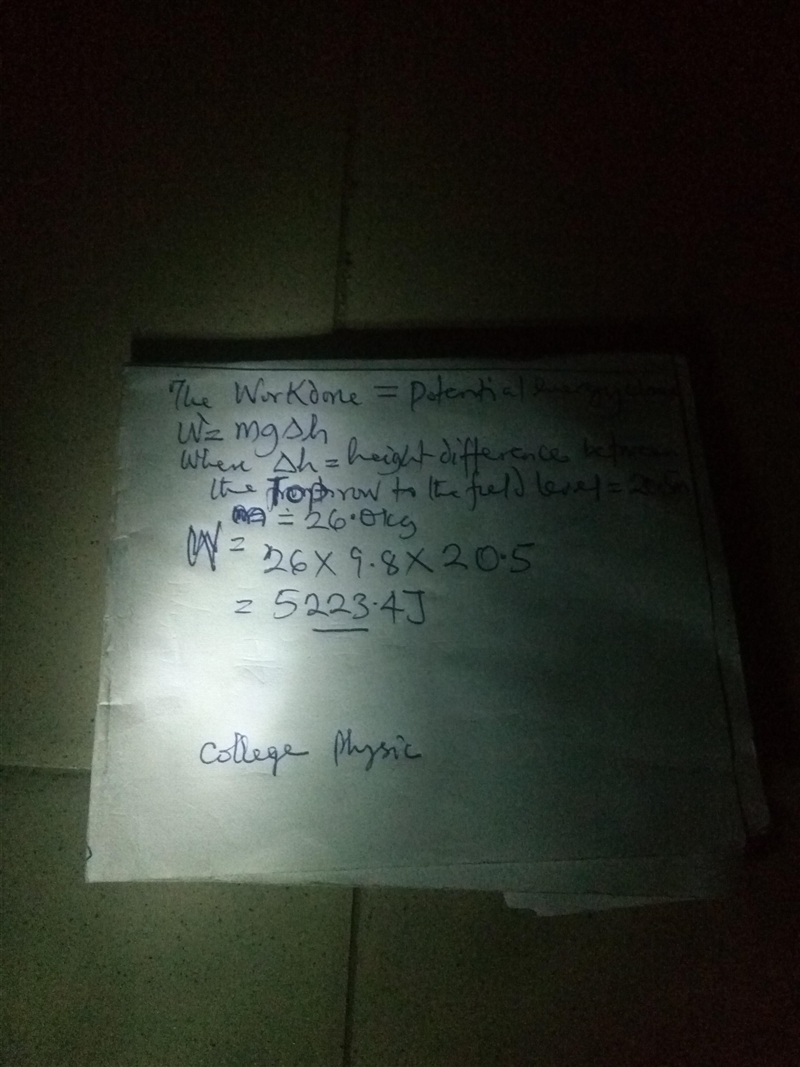 The Workdone = potential
W = mgΔh
When Δh = height differences between
the Top row to the field level = 20.5m
m = 26.0kg
W = 26 X 9.8 X 20.5
= 5223.4J
College Physic